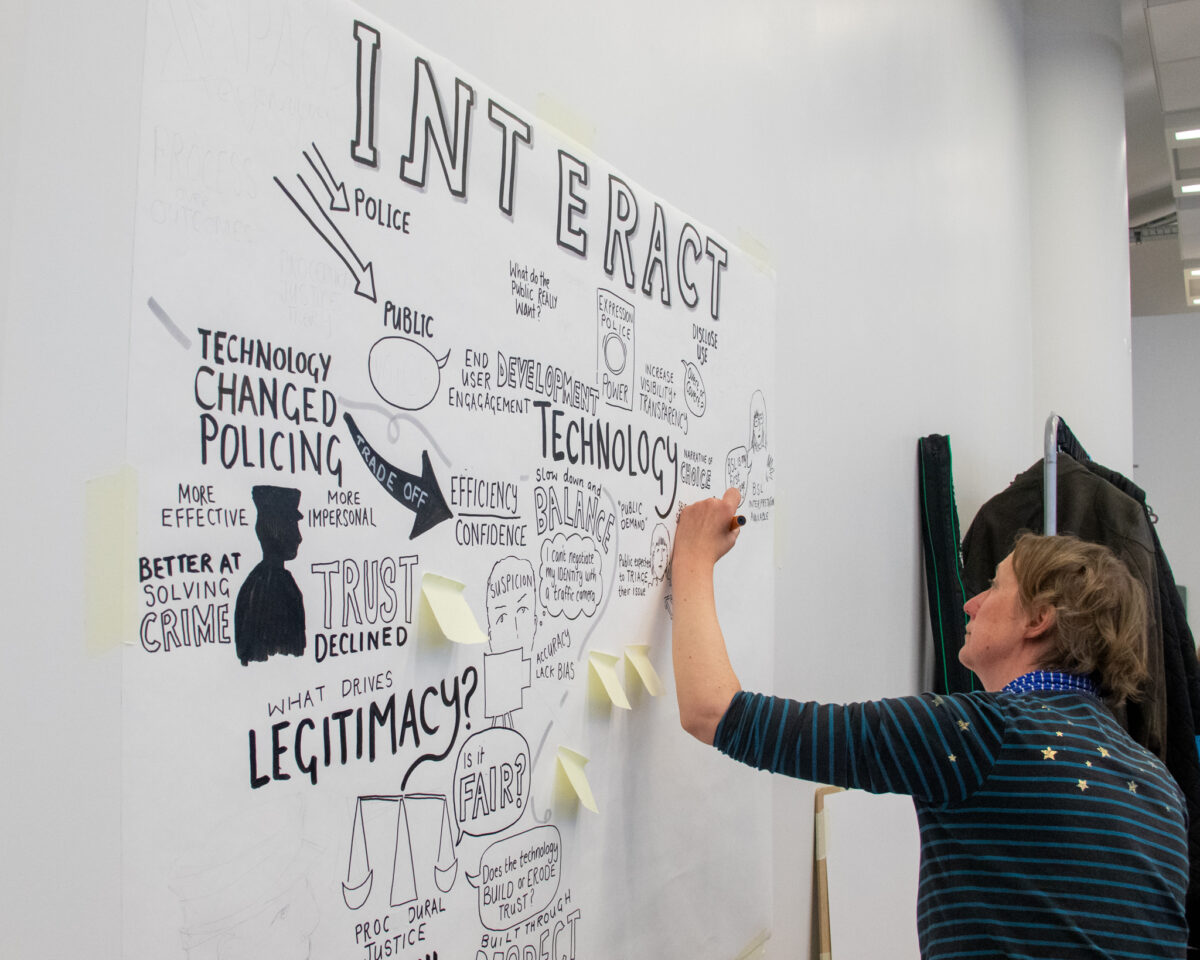 INTERACT
POLICE
PUBLIC
What do the
Public REALLY
Want?
EXPRESSION
POLICE
POWER
DISCLOSE
USE
TECHNOLOGY
CHANGED
POLICING
END
USER
ENGAGAGEMENT
DEVELOPMENT
TECHNOLOGY
INCREASE
VISIBILITY +
TRANSPARENCY
NARRATIVE OF
CHOICE
TRADE OFF
EFFICIENCY
CONFIDENCE
Slow down and
BALANCE
"PUBLIC
DEMAND"
BSL
INTERPRETATION
AVAILABLE
MORE
EFFECTIVE
MORE
IMPERSONAL
BETTER AT
SOLVING
CRIME
TRUST
DECLINED
SUSPICION
I can't negotiate
my IDENTITY with
a traffic camera
Public expected
to TRIAGE
their issue
ACCURACY
LACK BIAS
WHAT DRIVES
LEGITIMACY?
IS it
FAIR?
Does the technology
BUILD or ERODE
TRUST?
PROC DURAL
JUSTICE
BUILT THROUGH
PROCESS